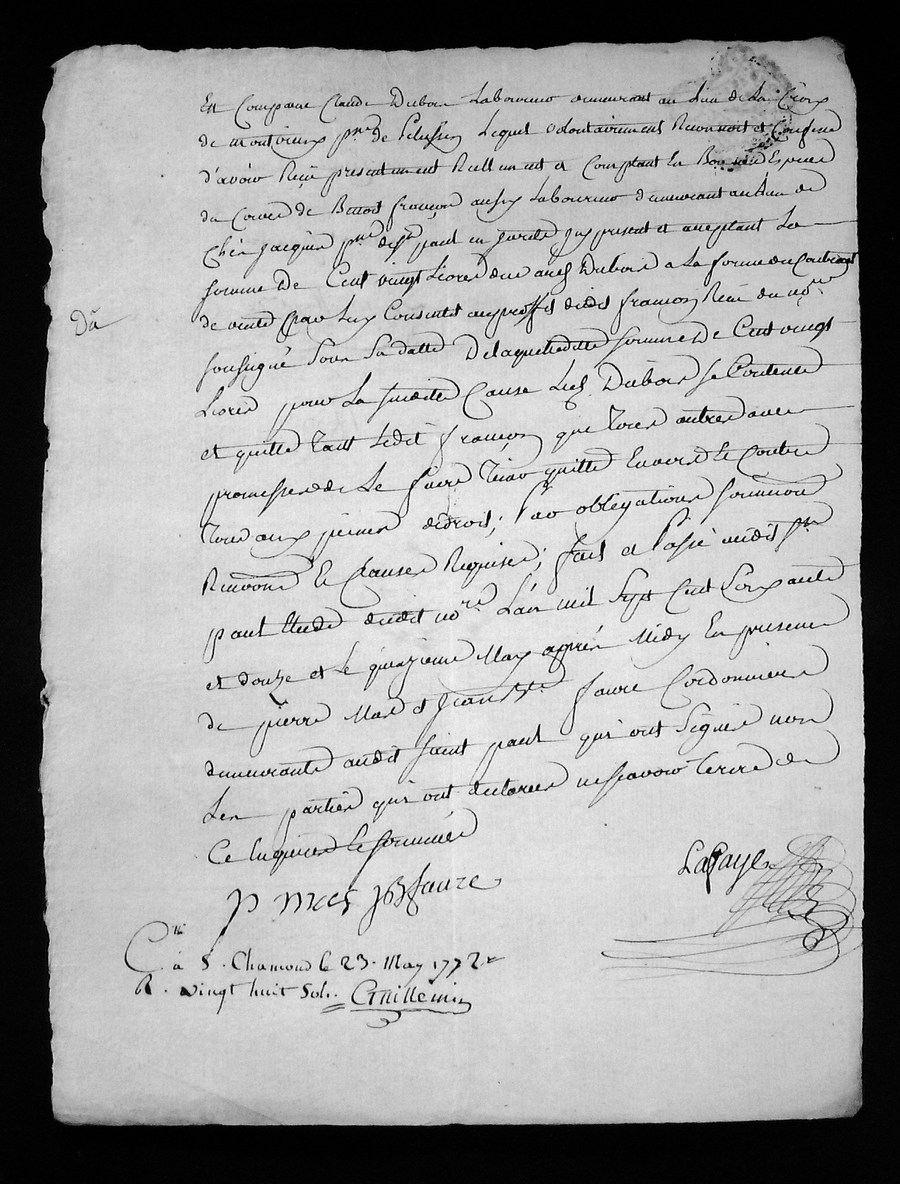 Est Comparu Claude Dubois Laboureur demeurant au Lieu de La Croix
de montvieux psse de Pelussin Lequel volontairement Reconnoit et Confesse
d'avoir Reçu présentement Réellement et Comptant En Bonnes Especes
du Cours de Benoit françon aussy Laboureur demeurant au Lieu de
Chez Jacquin psse de st paul en Jarest Icy present et acceptant La
somme de Cent vingt Livres due audt Dubois a La forme du Contract
de vente par Luy Consentit au proffit dudit françon Reçu du nore
Da
soussigné sous Sa datte De laquelle ditte somme de Cent vingt
Livres pour La susditte Cause Ledt Dubois se Contente
et quitte Tant Ledit françon que Tous autres avec
promesses de Le faire Tenir quitte Envers Et Contre
Tous aux peines de droit; Par obligations soumissions
Renvons Et Clauses Requises; fait et Passé audit st
paul Etude dudit nore L'an mil Sept Cent Soixante
et douze et Le quinzieme May apprés Midy En presence
de pierre Mas et Jean Bte faure Cordonniers
demeurants audit saint paul qui ont Signés non
Les parties qui ont declarées ne sçavoir Ecrire de
Ce Enquises Et sommées
p mas jB faure
LaFaye
Clle à S. Chamond le 23. May 1772
R. vingt huit Sols. Guillemin